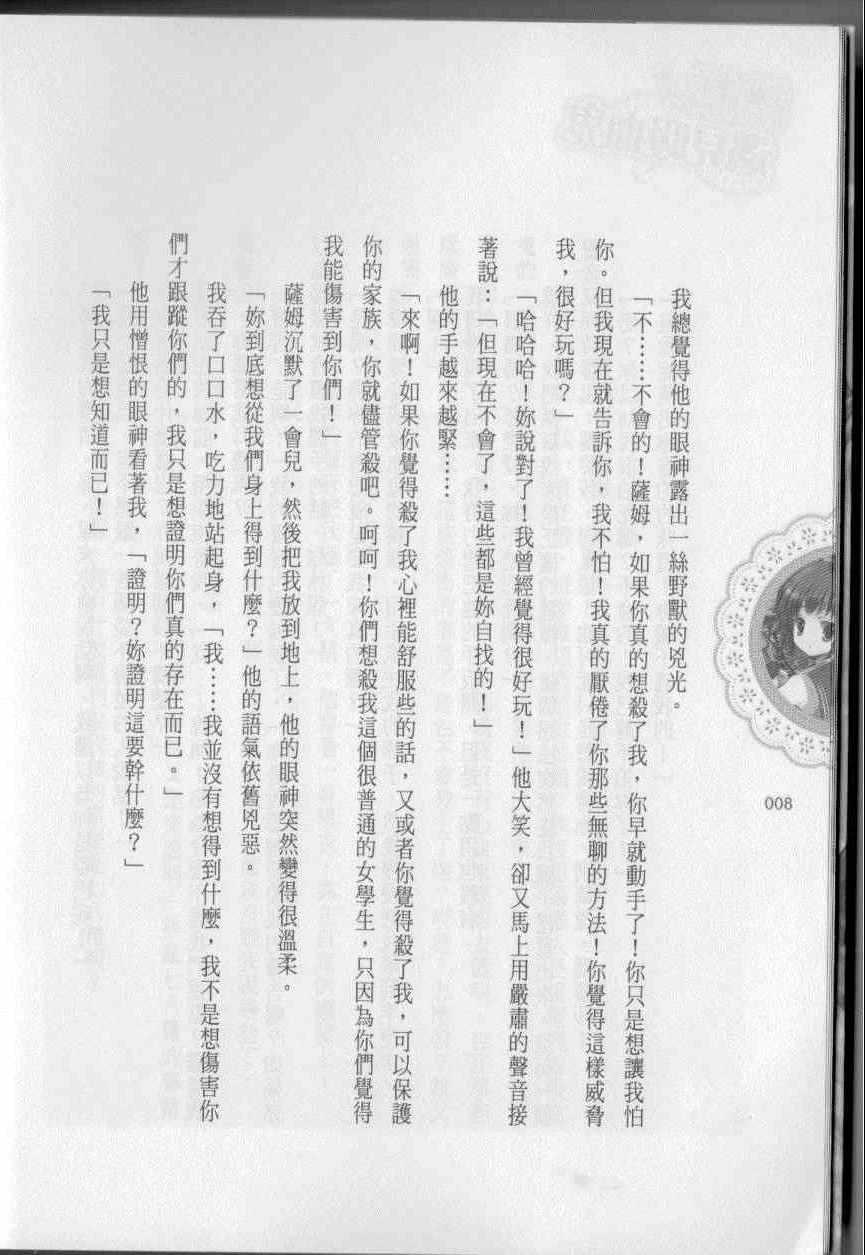 我總覺得他的眼神露出一絲野獸的兇光。
「不……不會的！薩姆，如果你真的想殺了我，你早就動手了！你只是想讓我怕
你。但我現在就告訴你，我不怕！我真的厭倦了你那些無聊的方法！你覺得這樣威脅
我，很好玩嗎？」
「哈哈哈！妳說對了！我曾經覺得很好玩！」他大笑，卻又馬上用嚴肅的聲音接
著說：「但現在不會了，這些都是妳自找的！」
他的手越來越緊……
「來啊！如果你覺得殺了我心裡能舒服些的話，又或者你覺得殺了我，可以保護
你的家族，你就儘管殺吧。呵呵！你們想殺我這個很普通的女學生，只因為你們覺得
我能傷害到你們！」
薩姆沉默了一會兒，然後把我放到地上，他的眼神突然變得很溫柔。
「妳到底想從我們身上得到什麼？」他的語氣依舊兇惡。
我吞了口口水，吃力地站起身，「我……我並沒有想得到什麼，我不是想傷害你
們才跟蹤你們的，我只是想證明你們真的存在而已。」
他用憎恨的眼神看著我，「證明？妳證明這要幹什麼？」
「我只是想知道而已！」
008